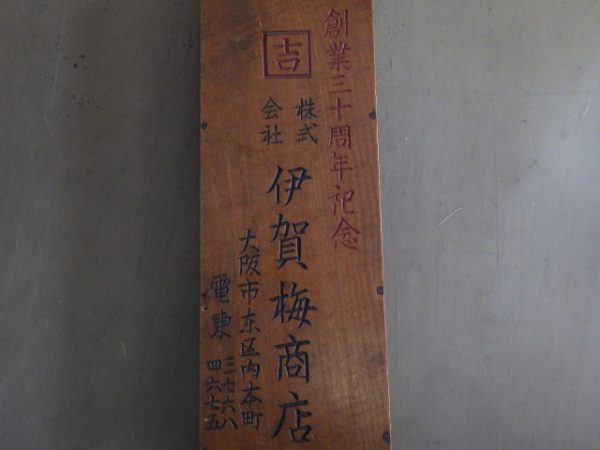 創業三十周年記念
吉
株式会社
伊賀梅商店
大阪市东区内本町
電東
三一七六八
四六七五